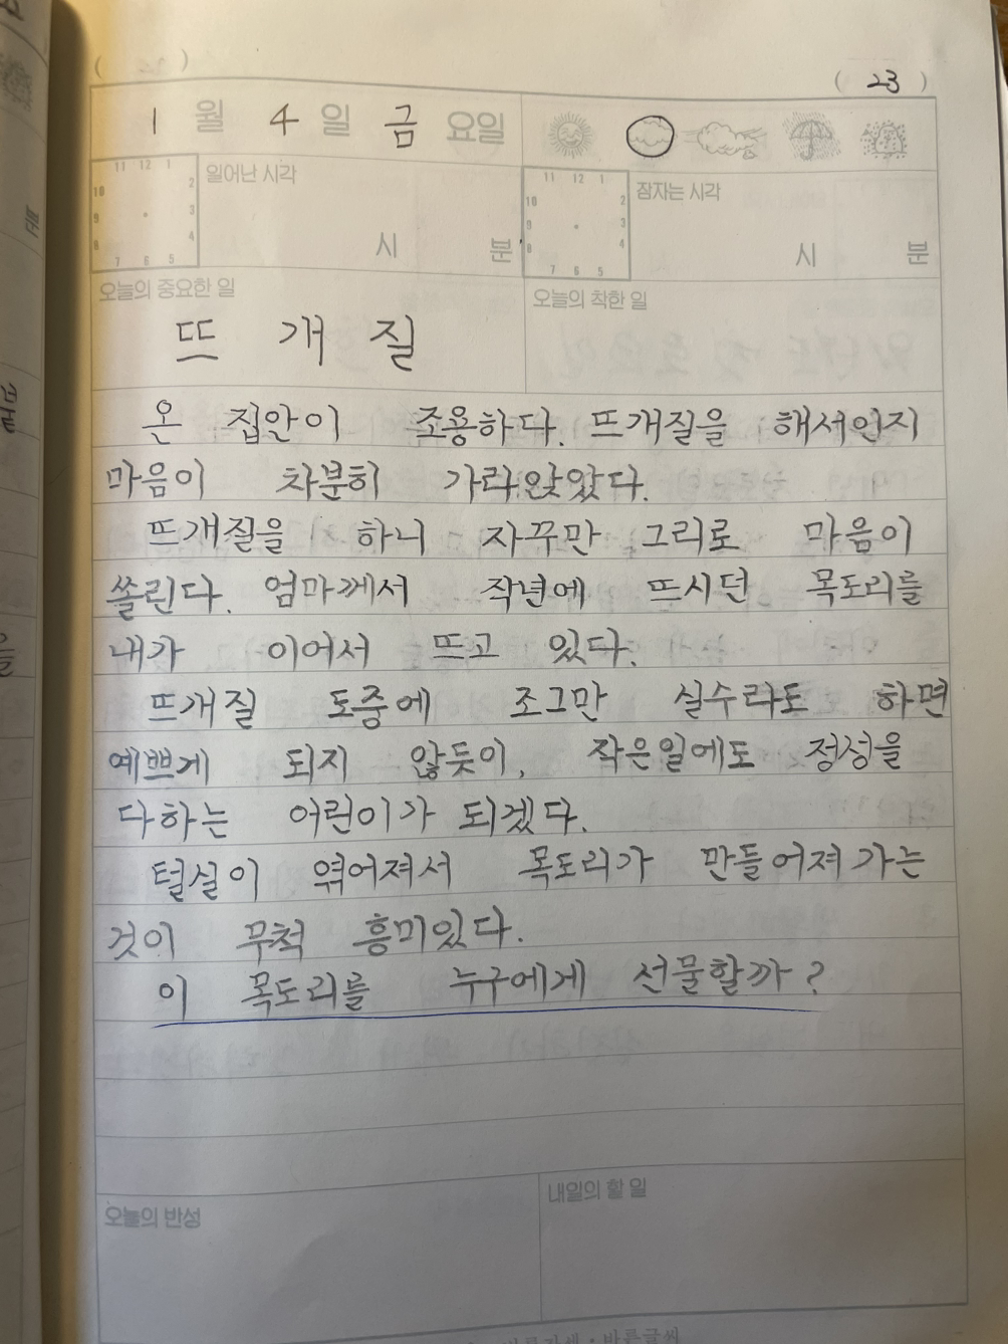 ( 23 )
1 월 4 일 금 요일
11 12 1
10 2
9 3
8 4
7 6 5
일어난 시각
시 분
11 12 1
10 2
9 3
8 4
7 6 5
잠자는 시각
시 분
오늘의 중요한 일
뜨 개 질
오늘의 착한 일
온 집안이 조용하다. 뜨개질을 해서인지
마음이 차분히 가라앉았다.
뜨개질을 하니 자꾸만 그리로 마음이
쏠린다. 엄마께서 작년에 뜨시던 목도리를
내가 이어서 뜨고 있다.
뜨개질 도중에 조그만 실수라도 하면
예쁘게 되지 않듯이, 작은일에도 정성을
다하는 어린이가 되겠다.
털실이 엮어져서 목도리가 만들어져 가는
것이 무척 흥미있다.
이 목도리를 누구에게 선물할까?
오늘의 반성
내일의 할 일
바른글씨